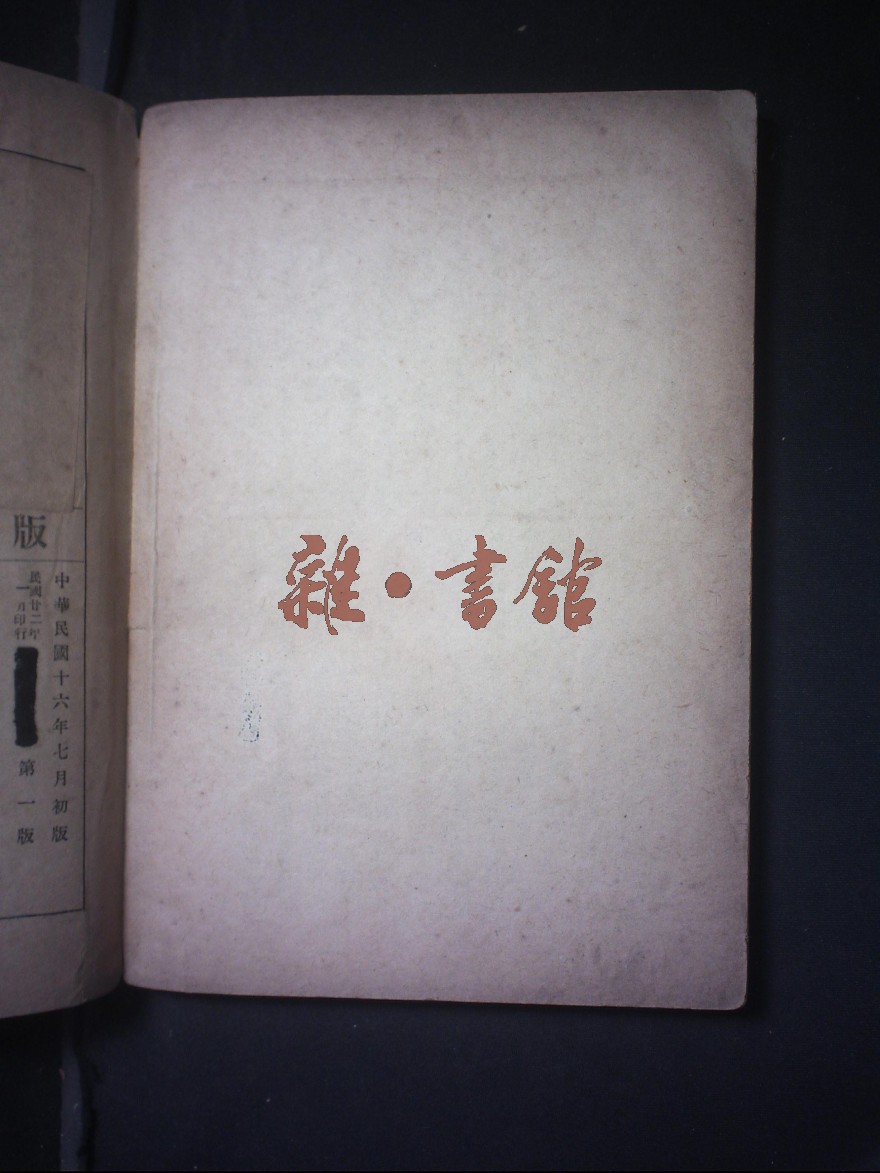 版
中華民國十六年七月初版
民國廿二年
一月印行
第一版
雜・書館